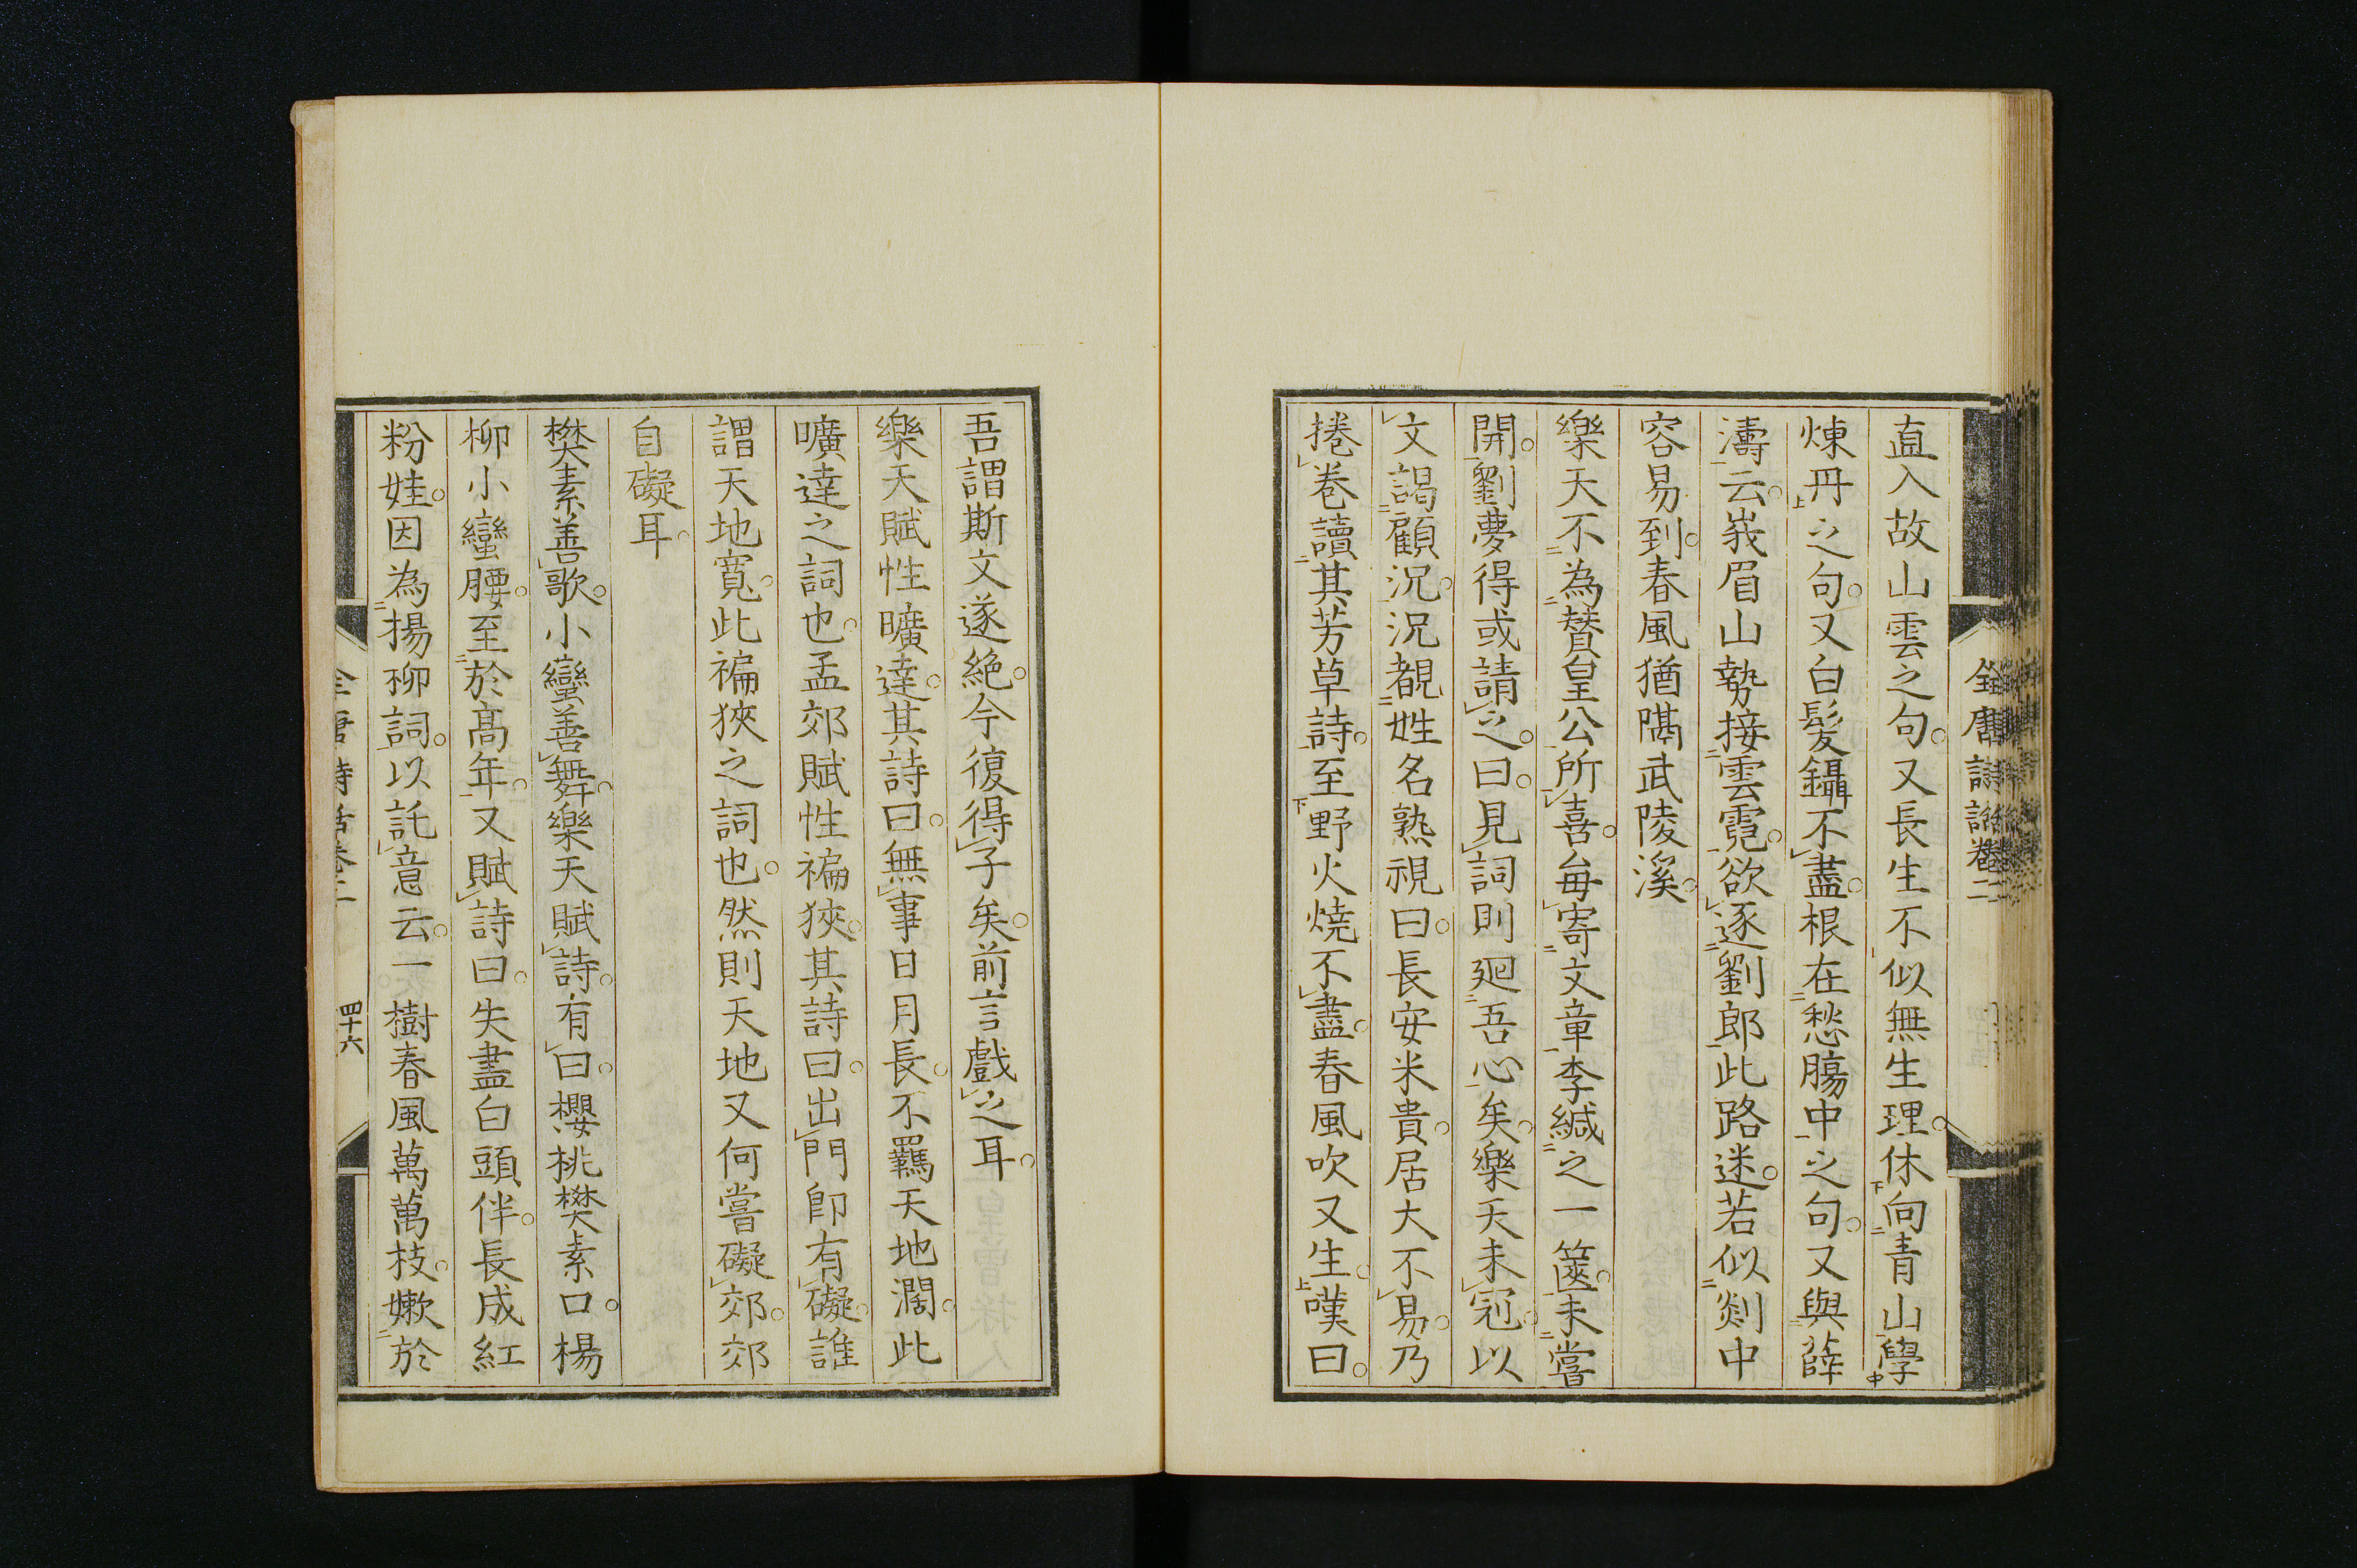 全唐詩話卷二
直入故山雲之句又長生不似無生理休向青山學
煉丹之句又白髮鑷不盡根在愁腸中之句又與薛
濤云峩眉山勢接雲霓欲逐劉郎此路迷若似剡中
容易到春風猶隔武陵溪
樂天不為贊皇公所喜每寄文章李緘之一篋未嘗
開劉夢得或請之曰見詞則廻吾心矣樂天未冠以
文謁顧况况覩姓名熟視曰長安米貴居大不易乃
捲卷讀其芳草詩至野火燒不盡春風吹又生嘆曰
吾謂斯文遂絶今復得子矣前言戲之耳
樂天賦性曠達其詩曰無事日月長不羈天地濶此
曠達之詞也孟郊賦性褊狹其詩曰出門即有礙誰
謂天地寬此褊狹之詞也然則天地又何嘗礙郊郊
自礙耳
樊素善歌小蠻善舞樂天賦詩有曰櫻桃樊素口楊
柳小蠻腰至於高年又賦詩曰失盡白頭伴長成紅
粉娃因為揚柳詞以託意云一樹春風萬萬枝嫩於
全唐詩話卷二
四十六